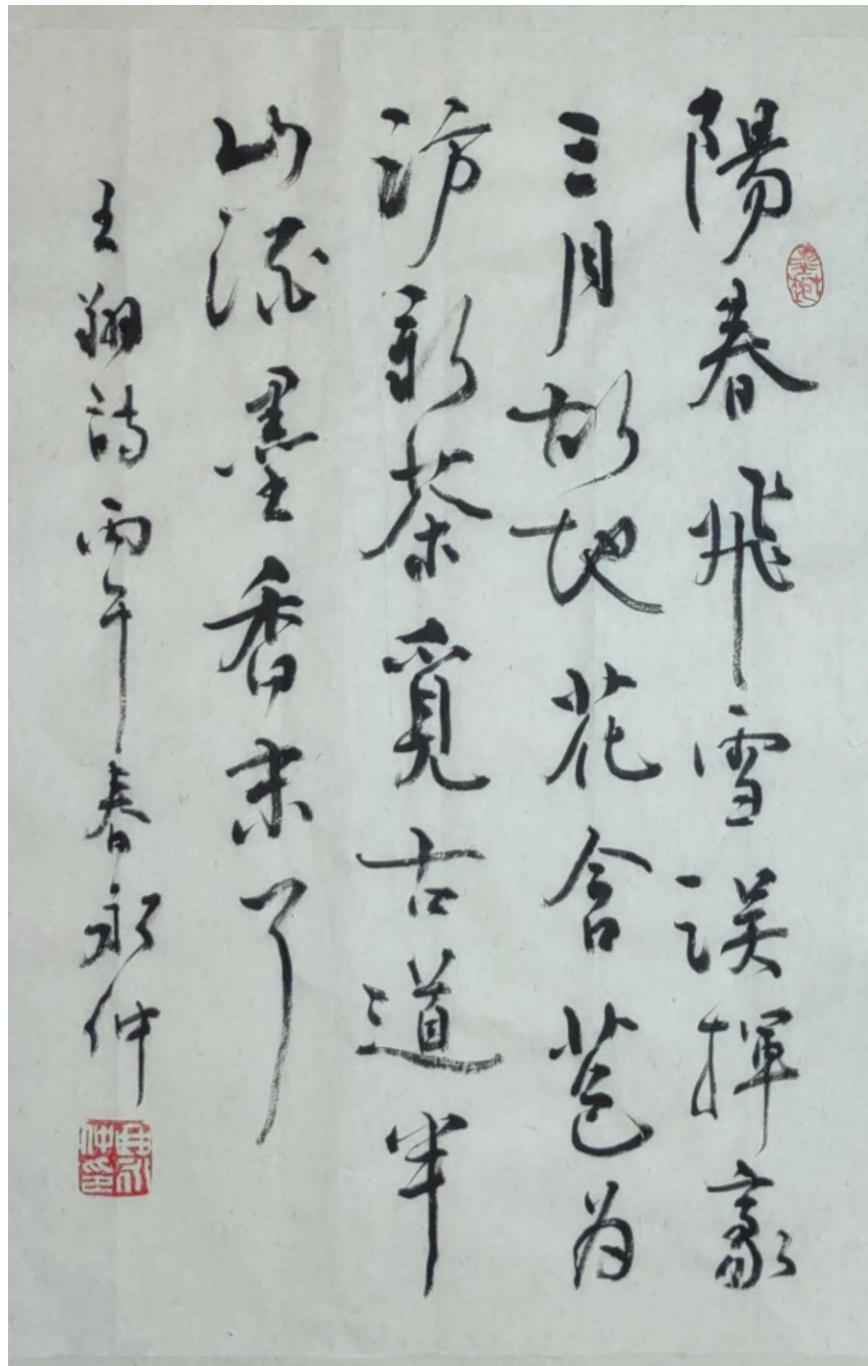 陽春飛雪誤揮豪
三月故地花含苞为
訪新茶覓古道半
山流墨香未了
王翔詩丙午春永仲